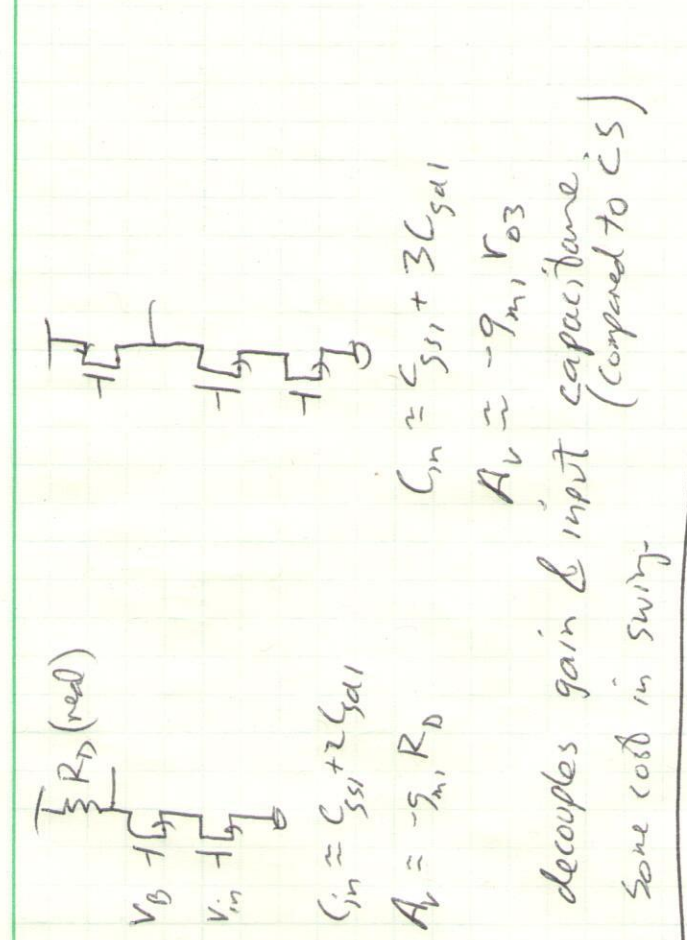 R_D (real)
V_B
V_in
C_in ≅ C_gs1 + 2C_gd1
A_v ≃ -g_m1 R_D
C_in ≅ C_gs1 + 3C_gd1
A_v ≃ -g_m1 r_o3
decouples gain & input capacitance
(compared to CS)
Some cost in swing.